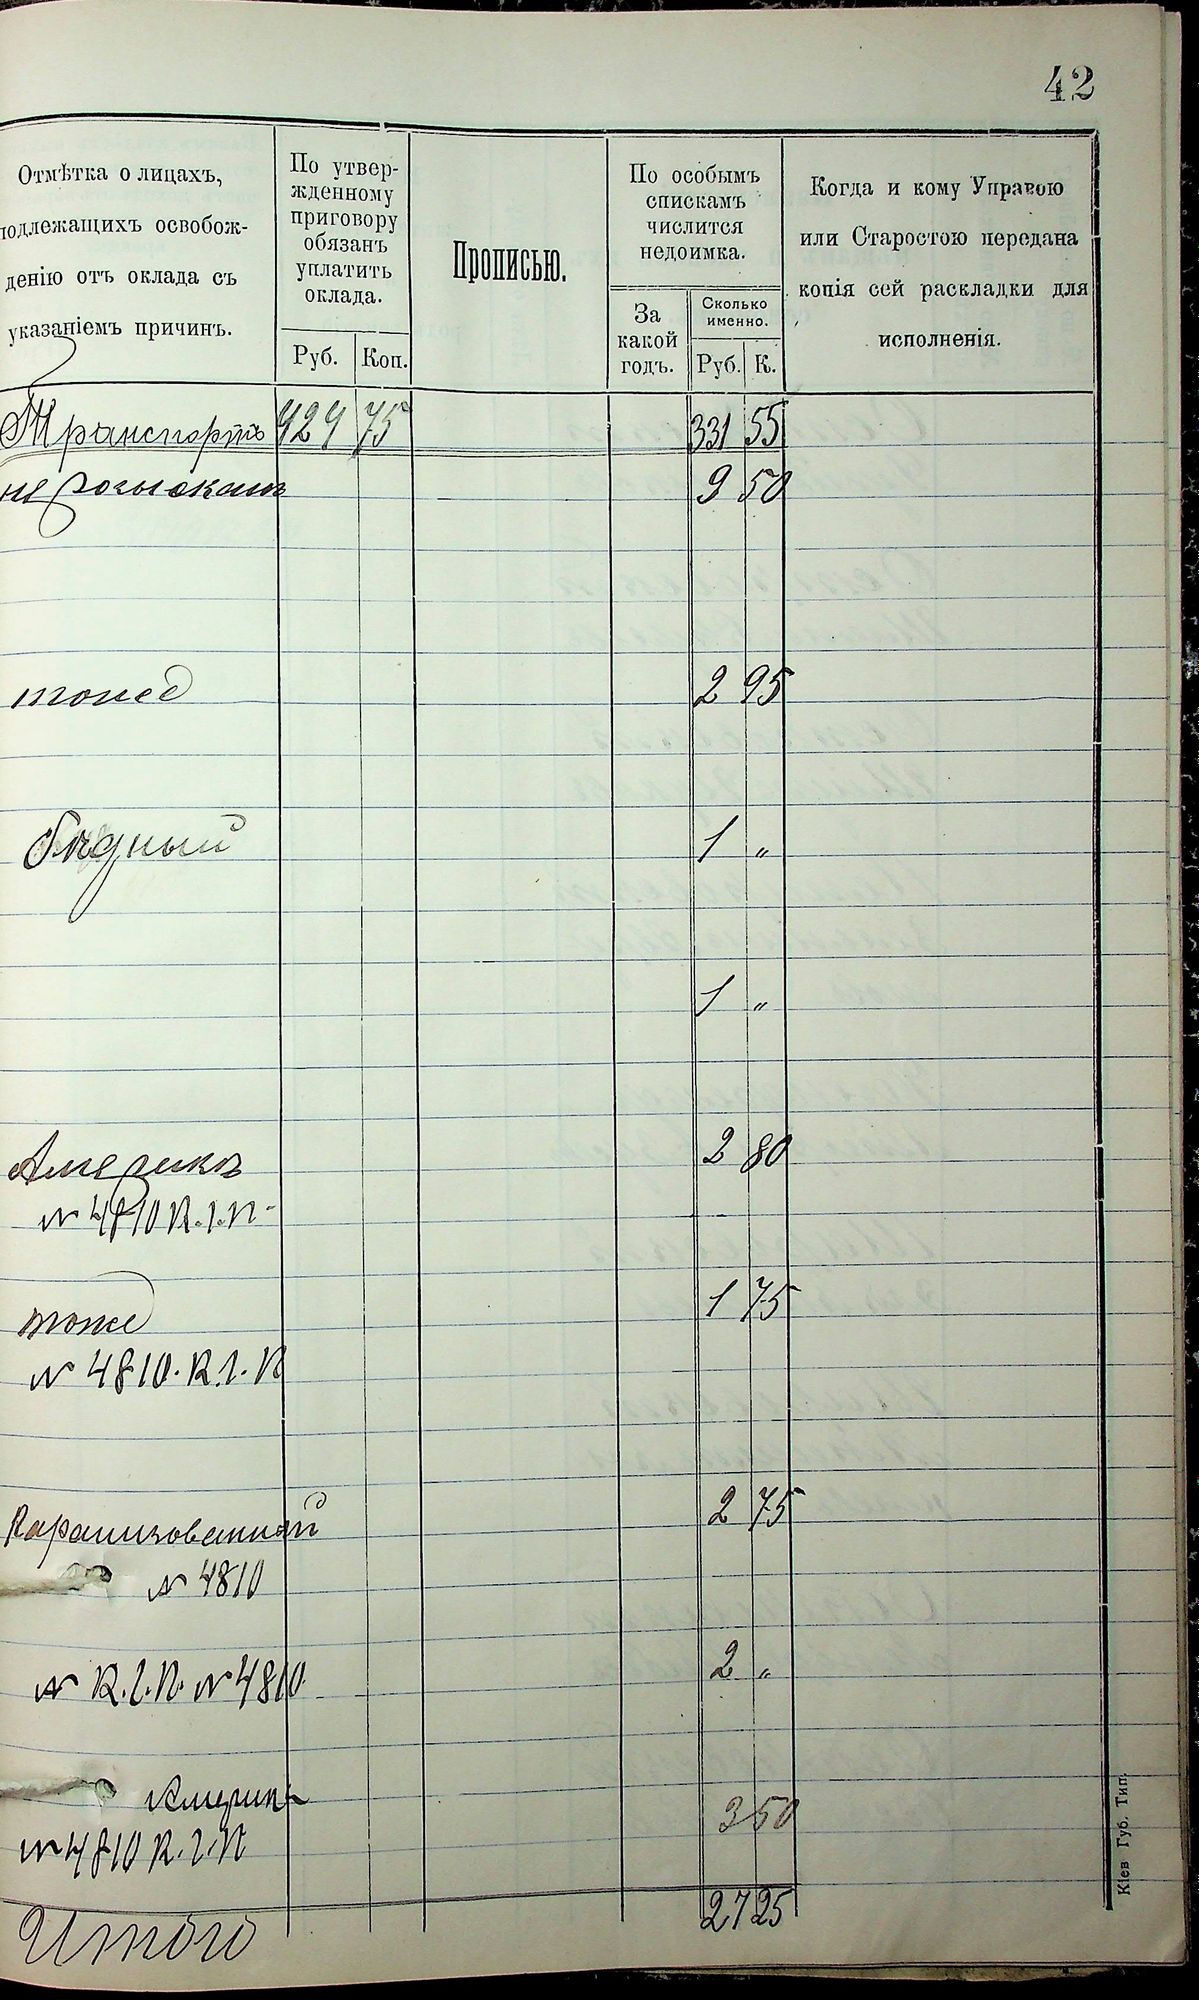 42
Отмѣтка о лицахъ,
подлежащихъ освобож-
денію отъ оклада съ
указаніемъ причинъ.
По утвер-
жденному
приговору
обязанъ
уплатить
оклада.
Руб. Коп.
Прописью.
По особымъ
спискамъ
числится
недоимка.
За
какой
годъ.
Сколько
именно.
Руб. К.
Когда и кому Управою
или Старостою передана
копія сей раскладки для
исполненія.
Транспортъ 424 75 331 55
не розысканъ 9 50
тоже 2 95
бѣдный 1 „
1 „
Америкѣ 2 80
№ 4810 К.І.П.
тоже 1 75
№ 4810. К.І.П
Парализованный 2 75
№ 4810
№ К.І.П. № 4810 2 „
Америк 3 50
№ 4810 К.І.П
Итого 27 25
Кіев Губ. Тип.